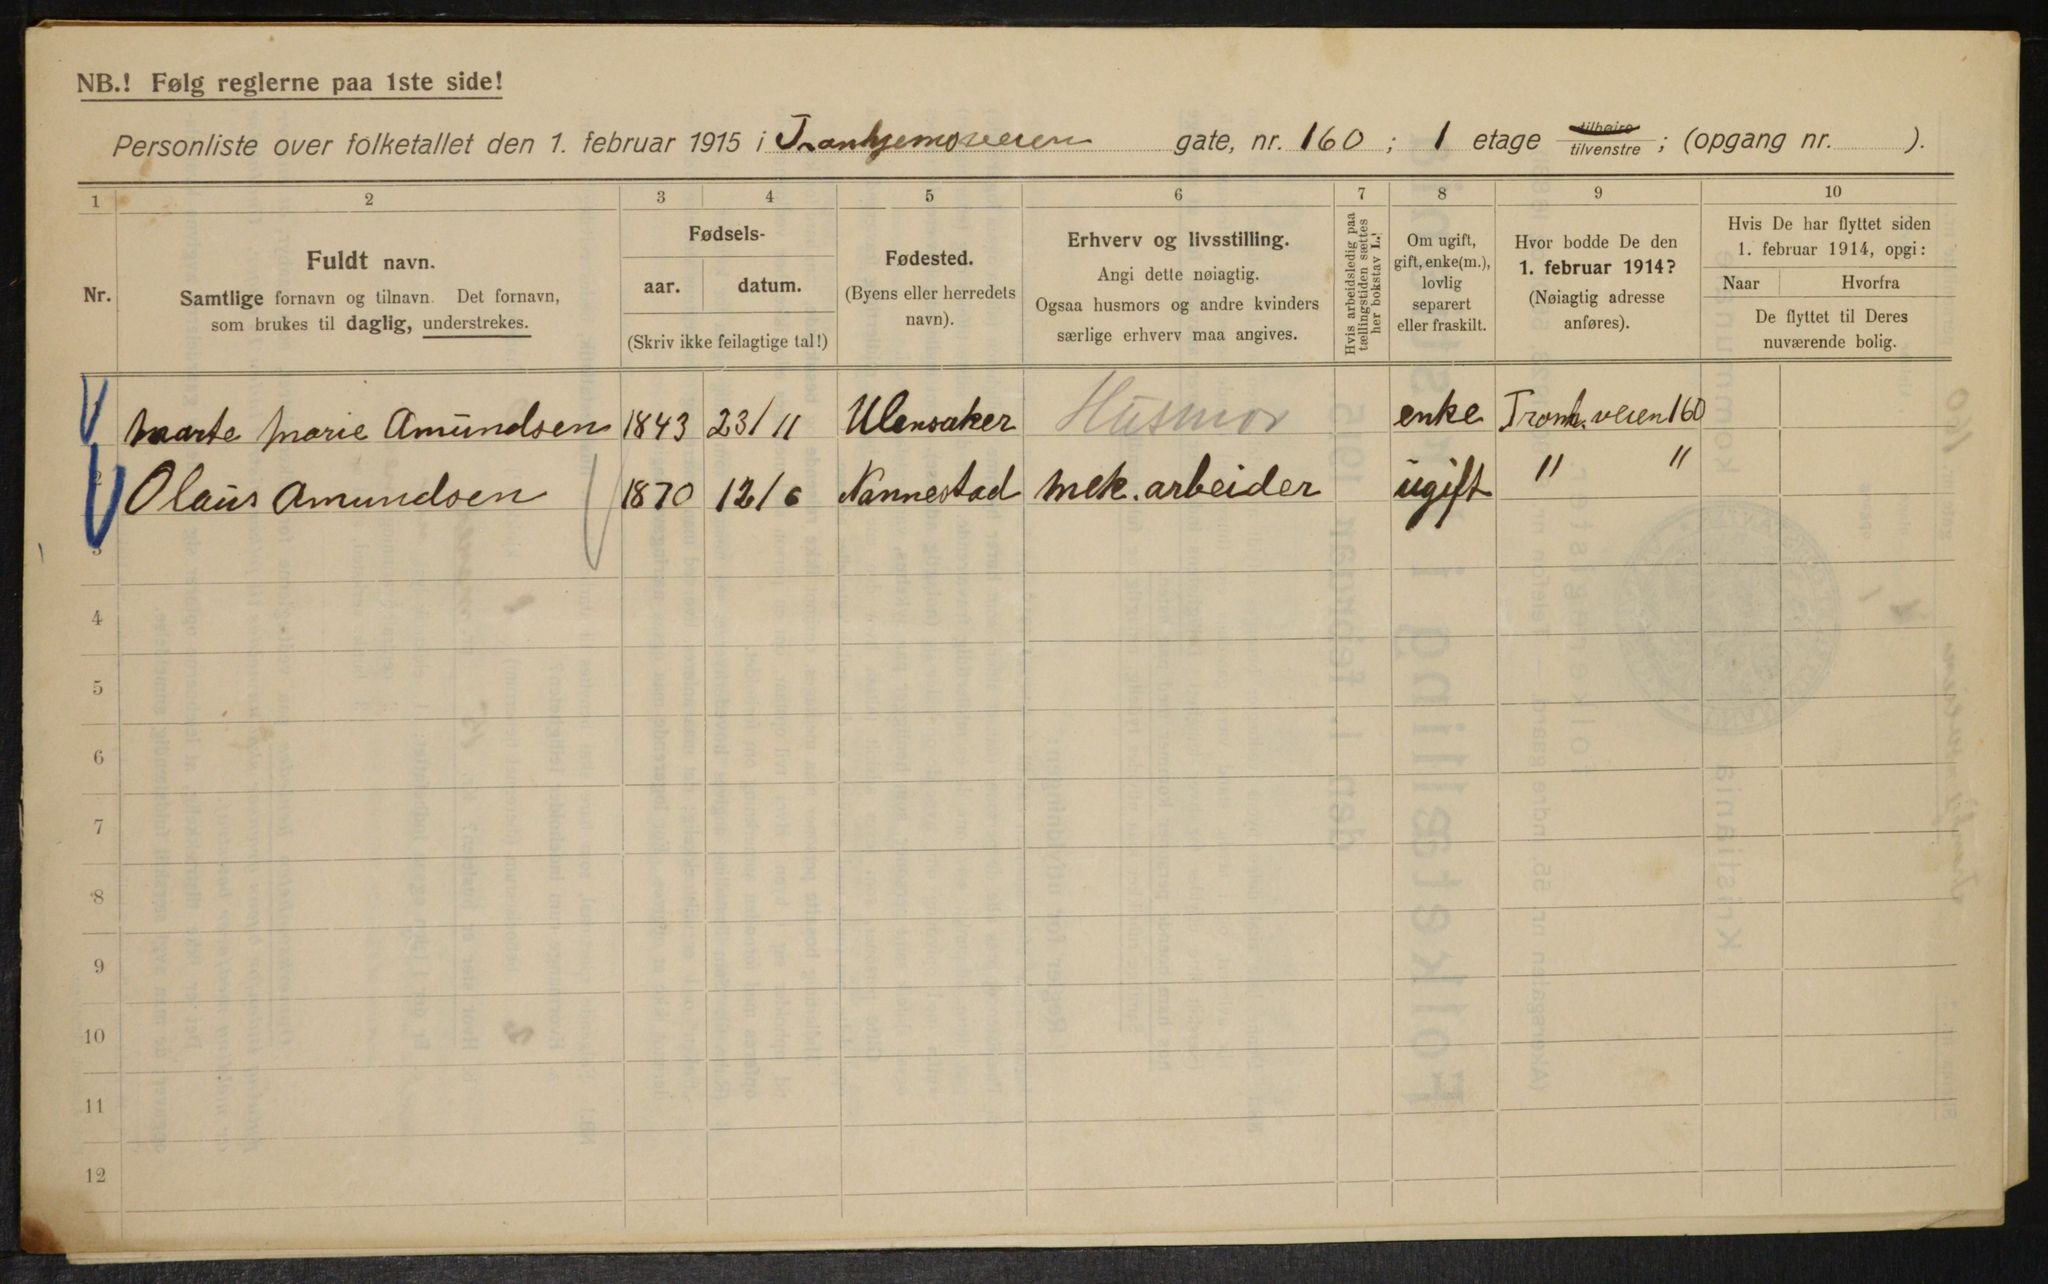 NB.! Følg reglerne paa 1ste side!
Personliste over folketallet den 1. februar 1915 i Tronhjemsveien gate, nr. 160 ; 1 etage tilhøire tilvenstre ; (opgang nr. ).
1 2 3 4 5 6 7 8 9 10
Nr.
Fuldt navn.
Samtlige fornavn og tilnavn. Det fornavn,
som brukes til daglig, understrekes.
Fødsels-
aar. datum.
(Skriv ikke feilagtige tal!)
Fødested.
(Byens eller herredets
navn).
Erhverv og livsstilling.
Angi dette nøiagtig.
Ogsaa husmors og andre kvinders
særlige erhverv maa angives.
Hvis arbeidsledig paa
tællingstiden sættes
her bokstav L.!
Om ugift,
gift, enke(m.),
lovlig
separert
eller fraskilt.
Hvor bodde De den
1. februar 1914?
(Nøiagtig adresse
anføres).
Hvis De har flyttet siden
1. februar 1914, opgi:
Naar Hvorfra
De flyttet til Deres
nuværende bolig.
Marte Marie Amundsen 1843 23/11 Ulensaker Husmor enke Tronh. veien 160
2 Olaus Amundsen 1870 12/6 Nannestad Mek. arbeider ugift " "
3
4
5
6
7
8
9
10
11
12